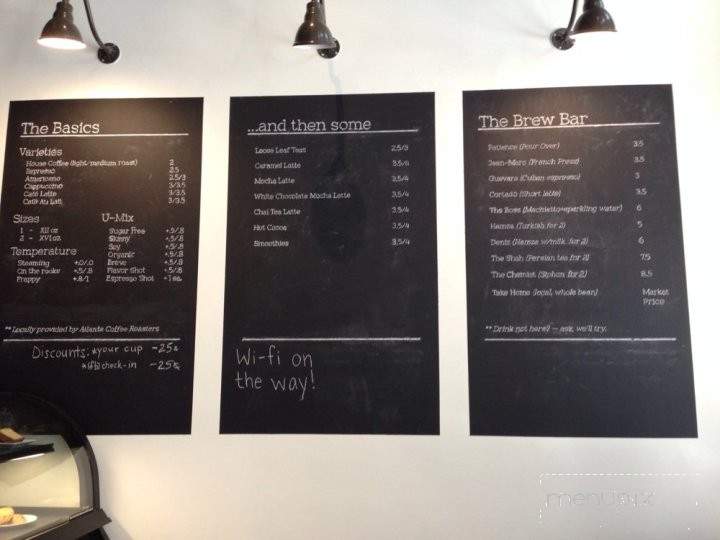 The Basics
Varieties
House Coffee (light/medium roast) 2
Espresso 2.5
Americano 2.5/3
Cappuccino 3/3.5
Café Latte 3/3.5
Café Au Lait 3/3.5
Sizes
1 - XII oz
2 - XVI oz
Temperature
Steaming +.0/.0
On the rocks +.5/.8
Frappy +.8/1
U-Mix
Sugar Free +.5/.8
Skinny +.5/.8
Soy +.5/.8
Organic +.5/.8
Breve +.5/.8
Flavor Shot +.5/.8
Espresso Shot +1 ea.
** Locally provided by Atlanta Coffee Roasters
Discounts: *your cup -25¢
check-in -25¢
...and then some
Loose Leaf Teas 2.5/3
Caramel Latte 3.5/4
Mocha Latte 3.5/4
White Chocolate Mocha Latte 3.5/4
Chai Tea Latte 3.5/4
Hot Cocoa 3.5/4
Smoothies 3.5/4
Wi-fi on
the way!
The Brew Bar
Patience (Pour Over) 3.5
Jean-Marc (French Press) 3.5
Guevara (Cuban espresso) 3
Cortado (Short latte) 3.5
The Boss (Macchiato+sparkling water) 6
Hamza (Turkish for 2) 5
Deniz (Hamza w/milk, for 2) 6
The Shah (Persian tea for 2) 7.5
The Chemist (Siphon for 2) 8.5
Take Home (local, whole bean) Market
Price
** Drink not here? — ask, we'll try.